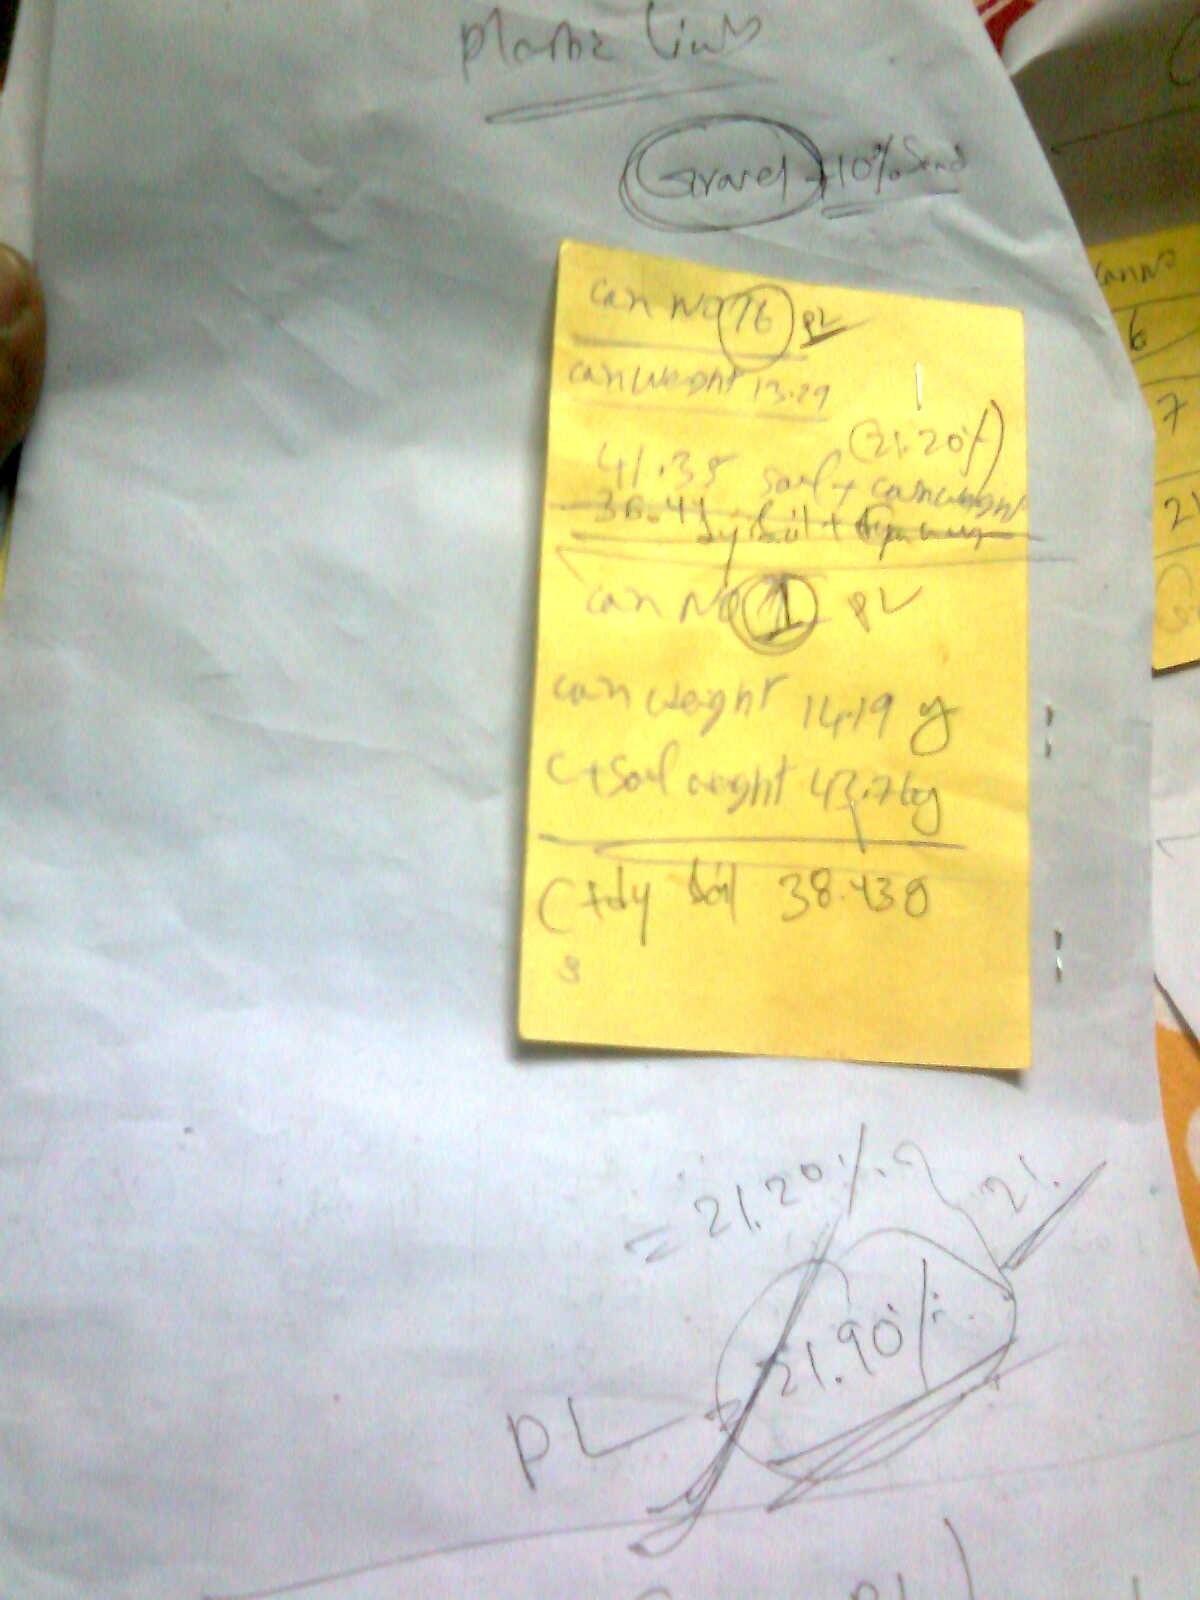 Plastic Limit
Gravel +10% Sand
can No 76 PL
can weight 13.29
(21.20%)
41.35 soil + can weight
36.44 dry soil +
can No 1 PL
can weight 14.19 g
C+soil weight 43.76g
C+dry soil 38.43g
= 21.20%
21.
PL = 21.90%
can No
6
7
21